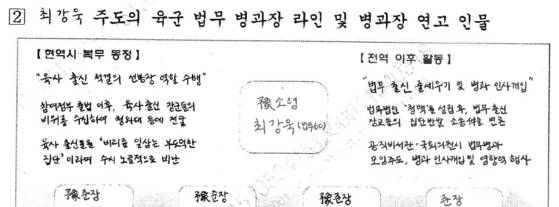 2 최강욱 주도의 육군 법무 병과장 라인 및 병과장 연고 인물
【현역시 복무 동정】
"육사 출신 척결의 선봉장 역할 수행"
참여정부 출범 이후, 육사 출신 장군들의
비위를 수집하여 청와대 등에 전달
육사 출신들을 "비리를 일삼는 부도덕한
집단"이라며 수시 노골적으로 비난
豫소령
최강욱(법무)
【전역 이후 활동】
"법무 출신 줄세우기 및 병과 인사개입"
법무법인 '청맥'을 설립 후, 법무 출신
장교들의 집단반발 소송 사건을 변론
공직비서관·국회의원시 법무병과
모임주도, 병과 인사개입 및 영향력 행사
豫준장
豫준장
豫준장
준장